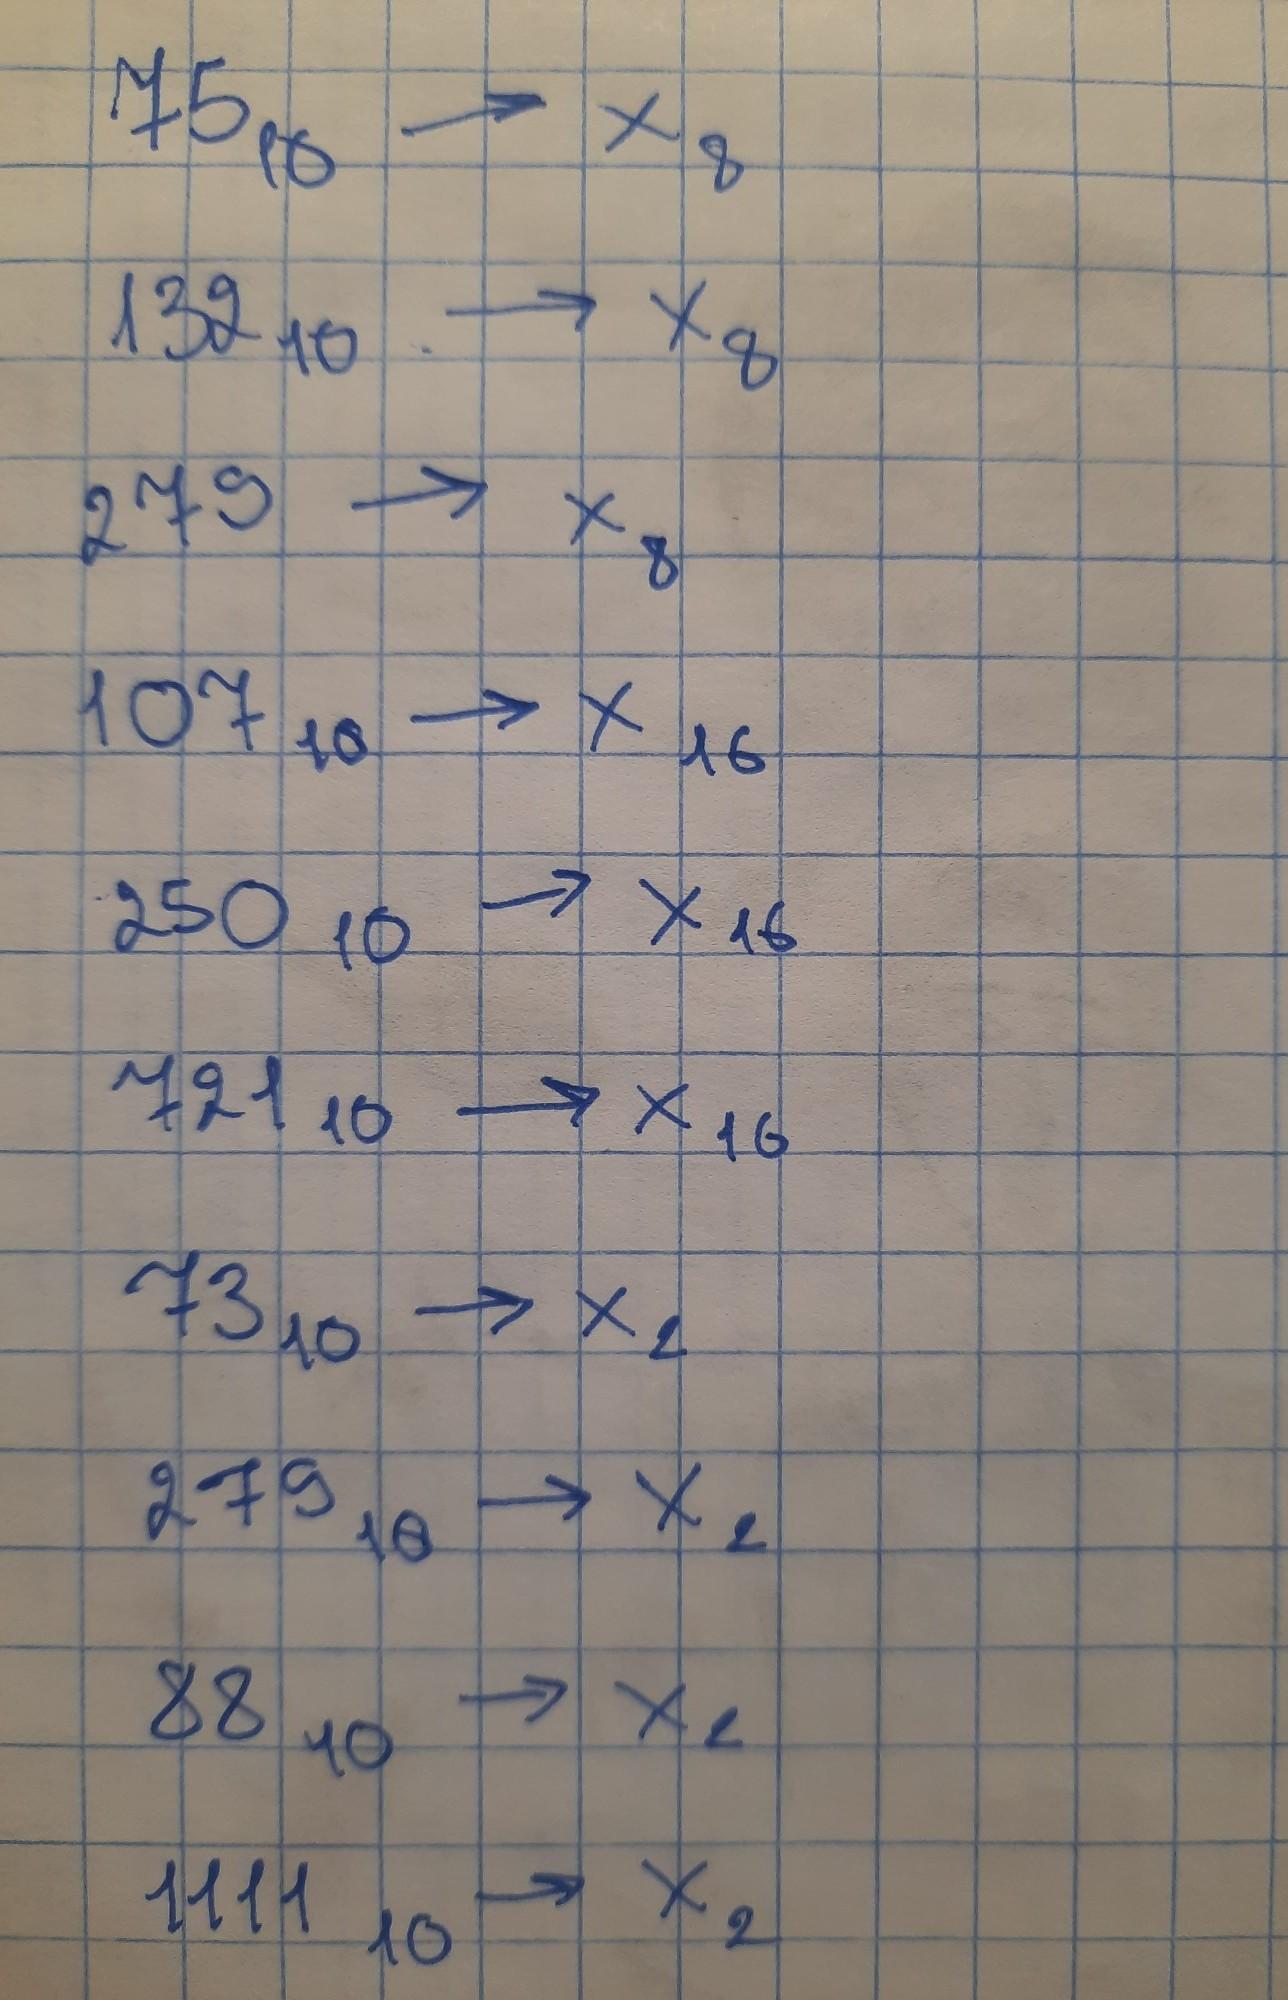 75₁₀ → x₈
132₁₀ → x₈
279 → x₈
107₁₀ → x₁₆
250₁₀ → x₁₆
721₁₀ → x₁₆
73₁₀ → x₂
279₁₀ → x₂
88₁₀ → x₂
1111₁₀ → x₂